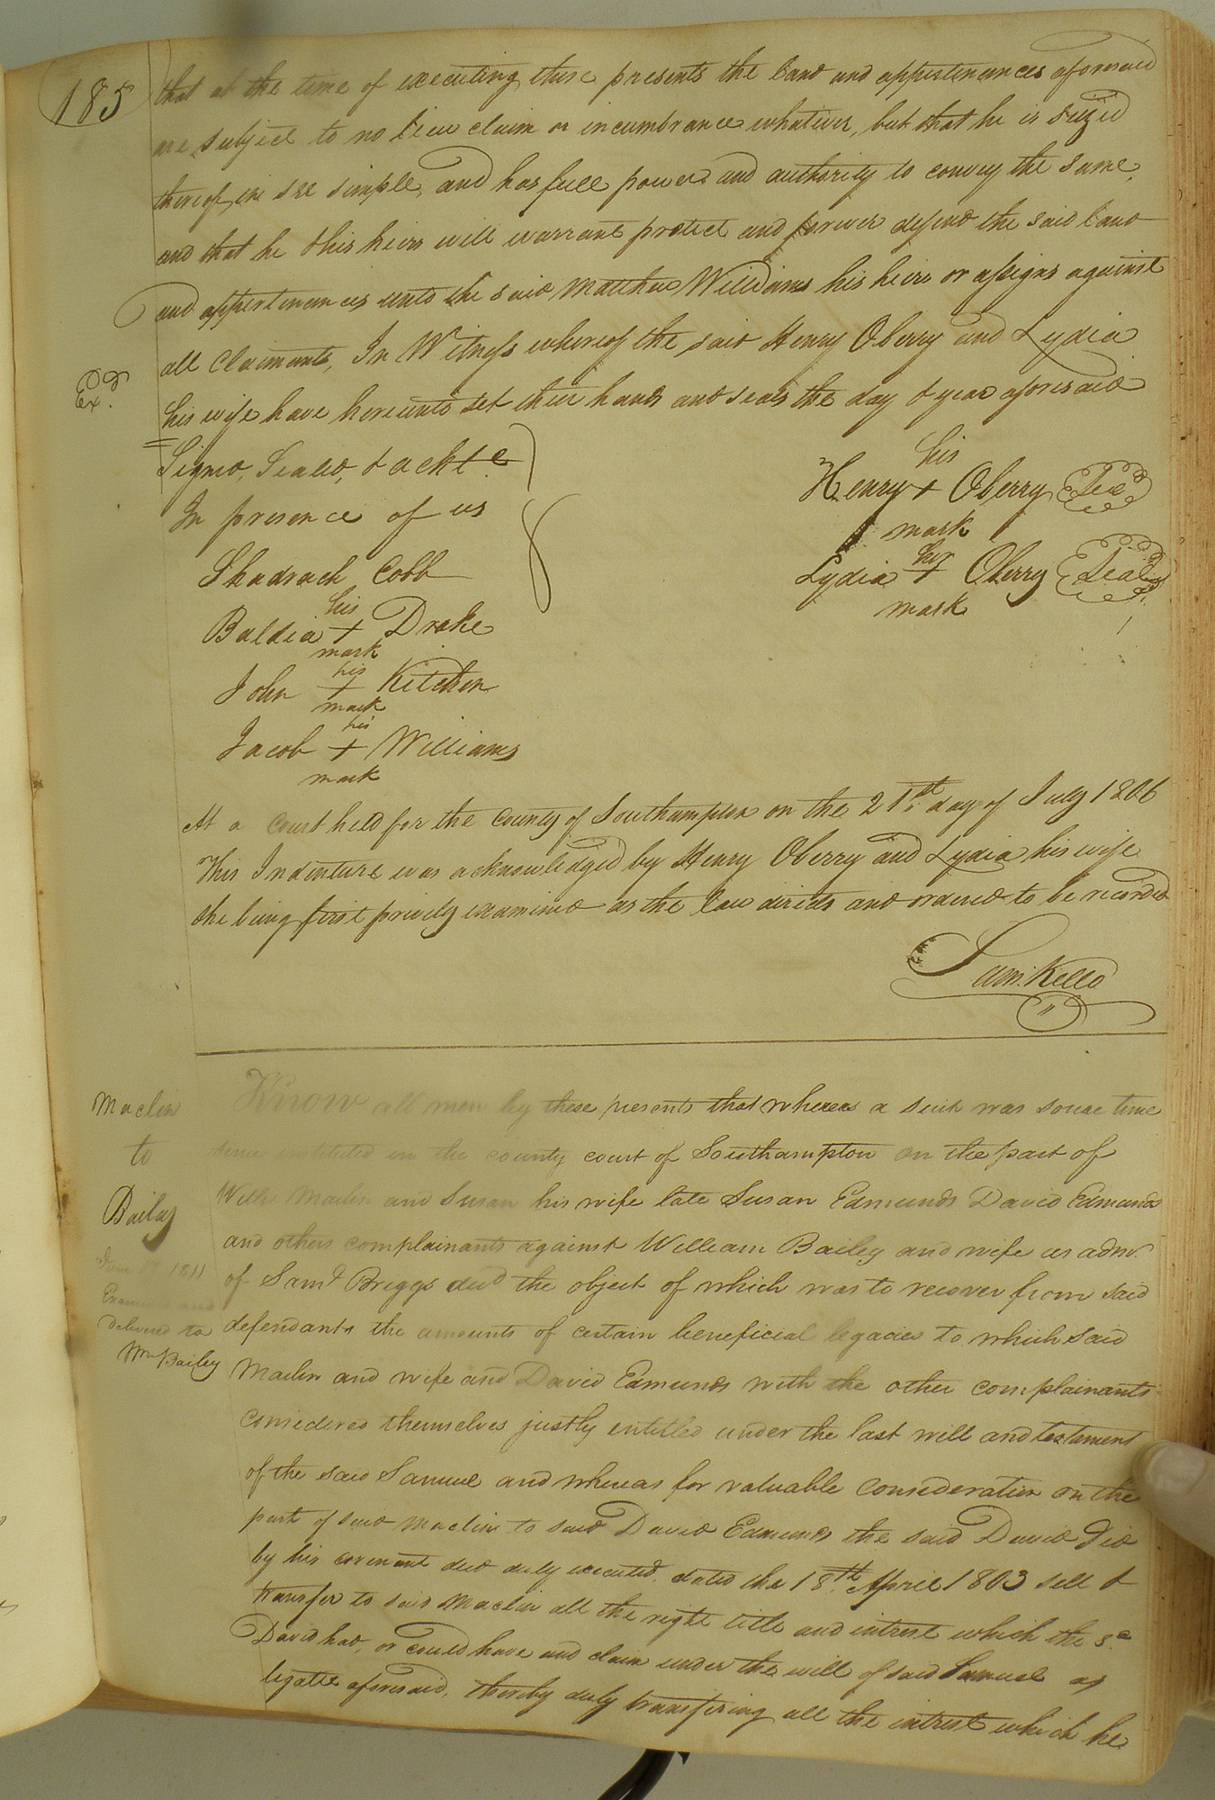 185
that at the time of executing these presents the land and appertinances aforesaid
are subject to no lien claim or incumbrance whatever, but that he is seized
thereof, in fee simple, and has full power and authority to convey the same,
and that he & his heirs will warrant protect and forever defend the said land
and appertinances unto the said Matthew Williams his heirs or assigns against
all Claimants, In Witness whereof the said Henry Oberry and Lydia
Exd.
his wife have hereunto set their hands and seals the day & year aforesaid
Signed, Sealed, & acktd
In presence of us
Shadrach Cobb
his
Baldia + Drake
mark
his
John + Kitchen
mark
his
Jacob + Williams
mark
his
Henry + Oberry Seal
mark
her
Lydia + Oberry Seal
mark
At a Court held for the County of Southampton on the 21st. day of July 1806
This Indenture was acknowledged by Henry Oberry and Lydia his wife
she being first privily examined as the law directs and ordered to be recorded
Sam. Kello
Maclin
to
Bailey
1811
Examined and
delivered to
Wm Bailey
Know all men by these presents that whereas a suit was some time
since instituted in the county court of Southampton on the part of
Maclin and Susan his wife late Susan Edmunds David Edmunds
and others complainants against William Bailey and wife as admr.
of Saml Briggs decd the object of which was to recover from said
defendants the amounts of certain beneficial legacies to which said
Maclin and wife and David Edmunds with the other complainants
considered themselves justly entitled under the last will and testament
of the said Samuel and whereas for valuable consideration on the
part of said Maclin to said David Edmunds the said David did
by his covenant deed duly executed dated the 18th. April 1803 sell &
transfer to said Maclin all the right title and intrest which the sd
David had, or could have and claim under the will of said Samuel as
legatee aforesaid, thereby duly transfering all the intrest which he